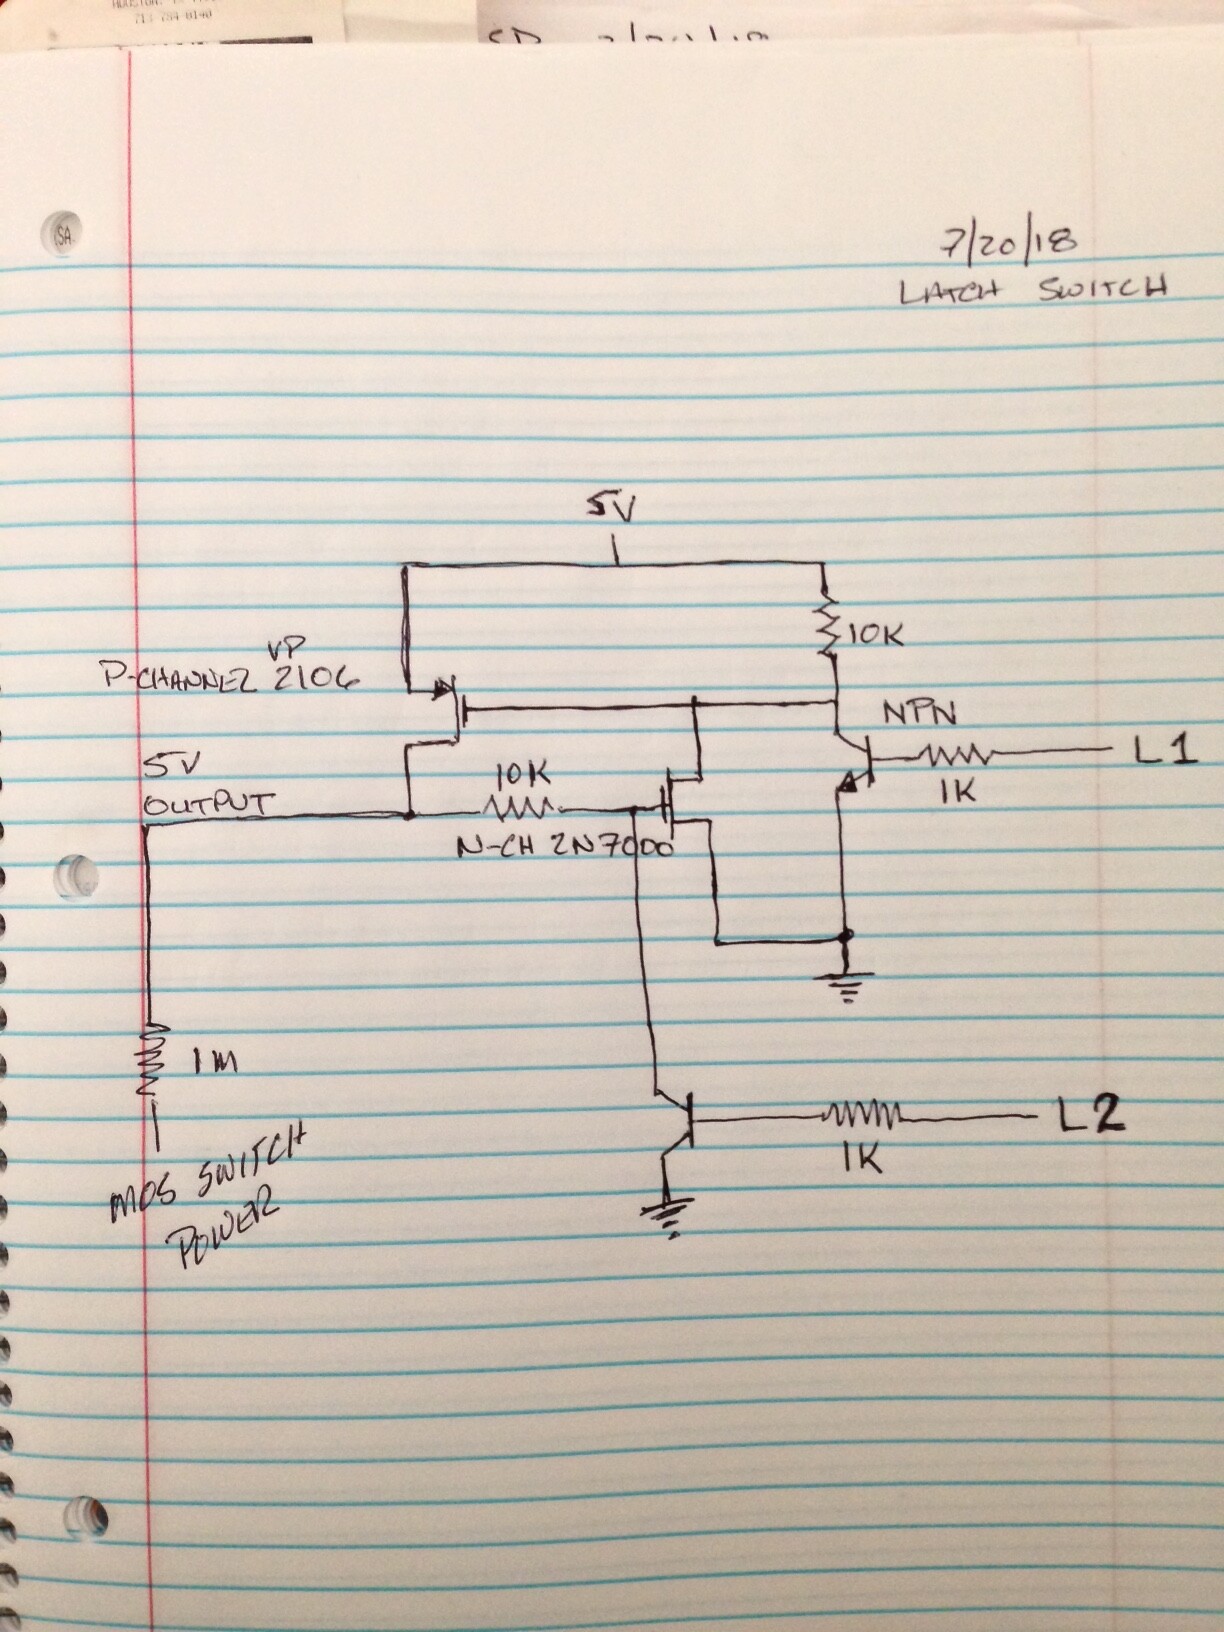 713-784-0140
7/20/18
LATCH SWITCH
5V
10K
VP
P-CHANNEL 2106
NPN
L1
1K
5V
OUTPUT
10K
N-CH 2N7000
1M
L2
1K
MOS SWITCH
POWER
SA